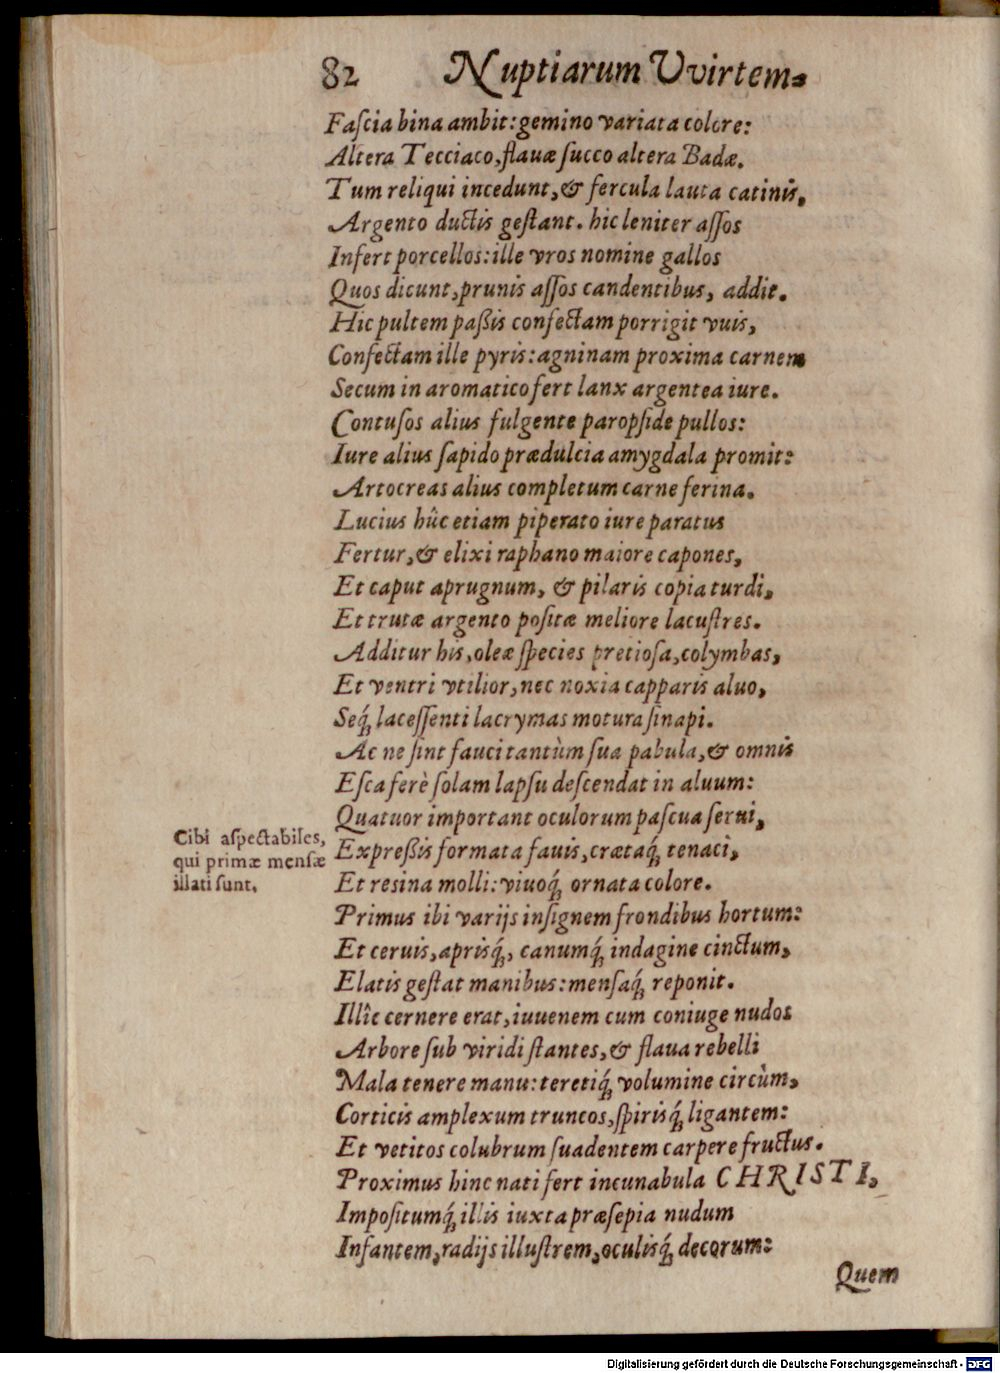 82 Nuptiarum Vvirtem.
Faſcia bina ambit: gemino variata colore:
Altera Tecciaco, flauæ ſucco altera Badæ.
Tum reliqui incedunt, & fercula lauta catinis,
Argento ductis geſtant. hic leniter aſſos
Infert porcellos: ille vros nomine gallos
Quos dicunt, prunis aſſos candentibus, addit.
Hic pultem paßis confectam porrigit vuis,
Confectam ille pyris: agninam proxima carnem
Secum in aromatico fert lanx argentea iure.
Contuſos alius fulgente paropſide pullos:
Iure alius ſapido prædulcia amygdala promit:
Artocreas alius completum carne ferina.
Lucius hûc etiam piperato iure paratus
Fertur, & elixi raphano maiore capones,
Et caput aprugnum, & pilaris copia turdi,
Et trutæ argento poſitæ meliore lacuſtres.
Additur his, oleæ ſpecies pretioſa, colymbas,
Et ventri vtilior, nec noxia capparis aluo,
Seq́; laceſſenti lacrymas motura ſinapi.
Ac ne ſint fauci tantùm ſua pabula, & omnis
Eſca ferè ſolam lapſu deſcendat in aluum:
Quatuor important oculorum paſcua ſerui,
Cibi aſpectabiles,
qui primæ menſæ
illati ſunt.
Expreßis formata fauis, crætaq́; tenaci,
Et resina molli: viuoq́; ornata colore.
Primus ibi varijs inſignem frondibus hortum:
Et ceruis, aprisq́;, canumq́; indagine cinctum,
Elatis geſtat manibus: menſaq́; reponit.
Illîc cernere erat, iuuenem cum coniuge nudos
Arbore ſub viridi ſtantes, & flaua rebelli
Mala tenere manu: teretiq́; volumine circùm,
Corticis amplexum truncos, ſpirisq́; ligantem:
Et vetitos colubrum ſuadentem carpere fructus.
Proximus hinc nati fert incunabula CHRISTI,
Impoſitumq́; illis iuxta præſepia nudum
Infantem, radijs illuſtrem, oculisq́; decorum:
Quem
Digitalisierung gefördert durch die Deutsche Forschungsgemeinschaft - DFG